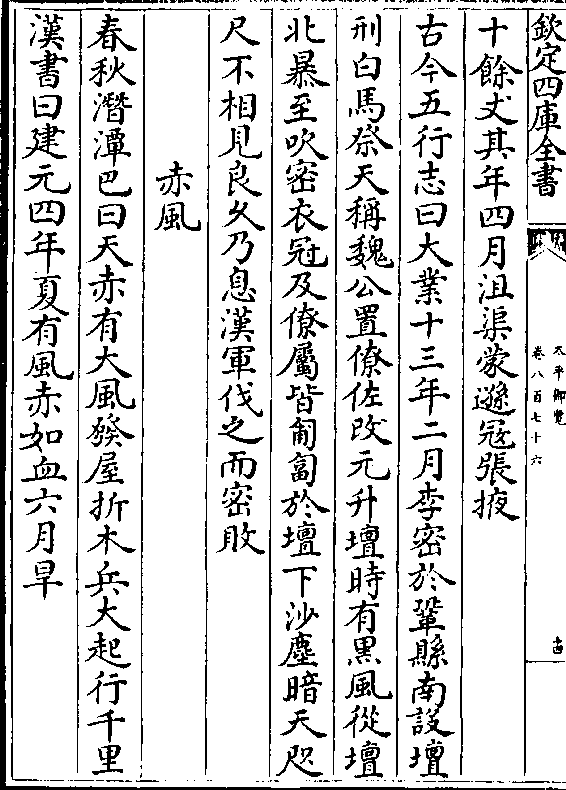 欽定四庫全書
太平御覽
卷八百七十六
十四
十餘丈其年四月沮渠蒙遜冦張掖
古今五行志曰大業十三年二月李密於鞏縣南設壇
刑白馬祭天稱魏公置僚佐改元升壇時有黒風從壇
北暴至吹密衣冠及僚屬皆匍匐於壇下沙塵暗天咫
尺不相見良久乃息漢軍伐之而密敗
赤風
春秋潛潭巴曰天赤有大風發屋折木兵大起行千里
漢書曰建元四年夏有風赤如血六月旱